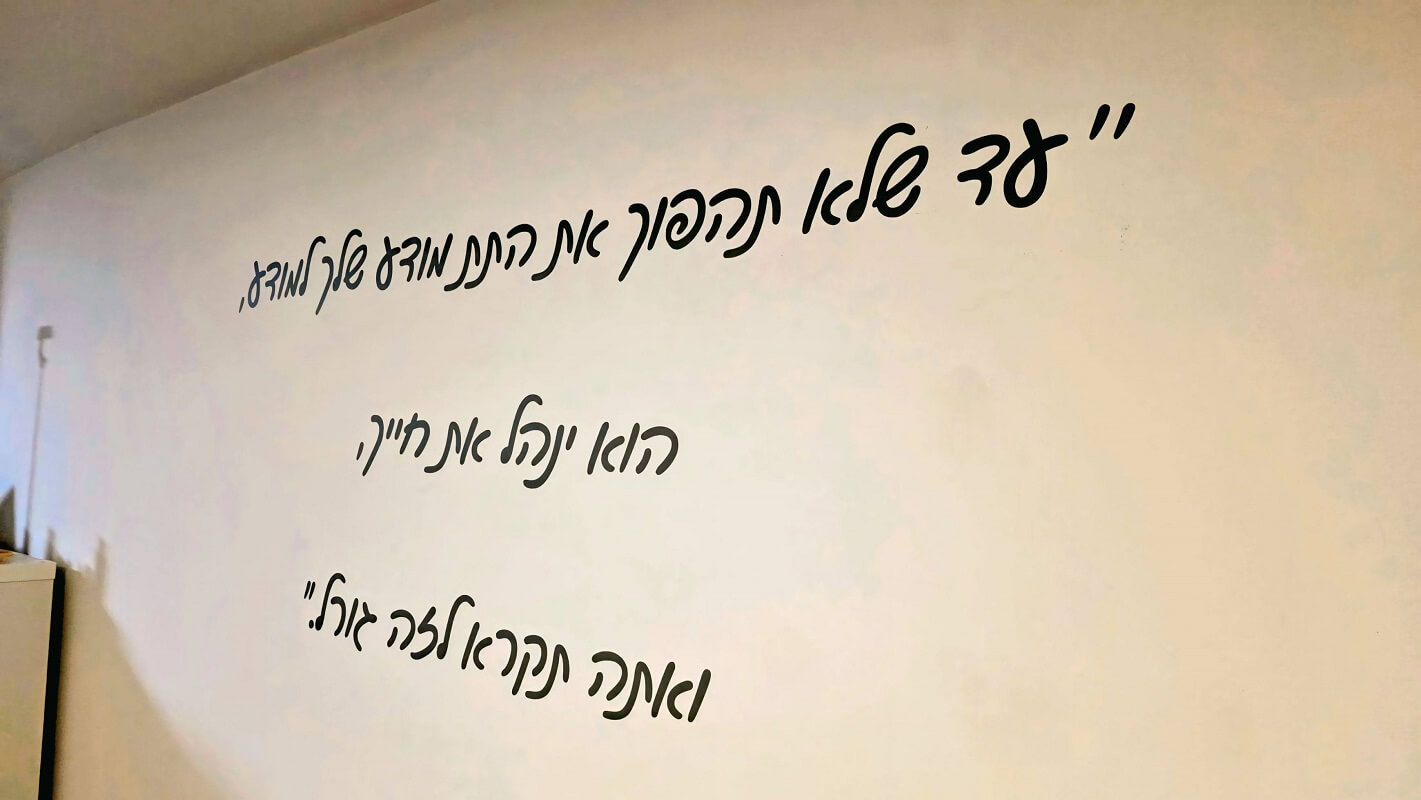 "עד שלא תהפוך את התת מודע שלך למודע,
הוא ינהל את חייך,
ואתה תקרא לזה גורל."